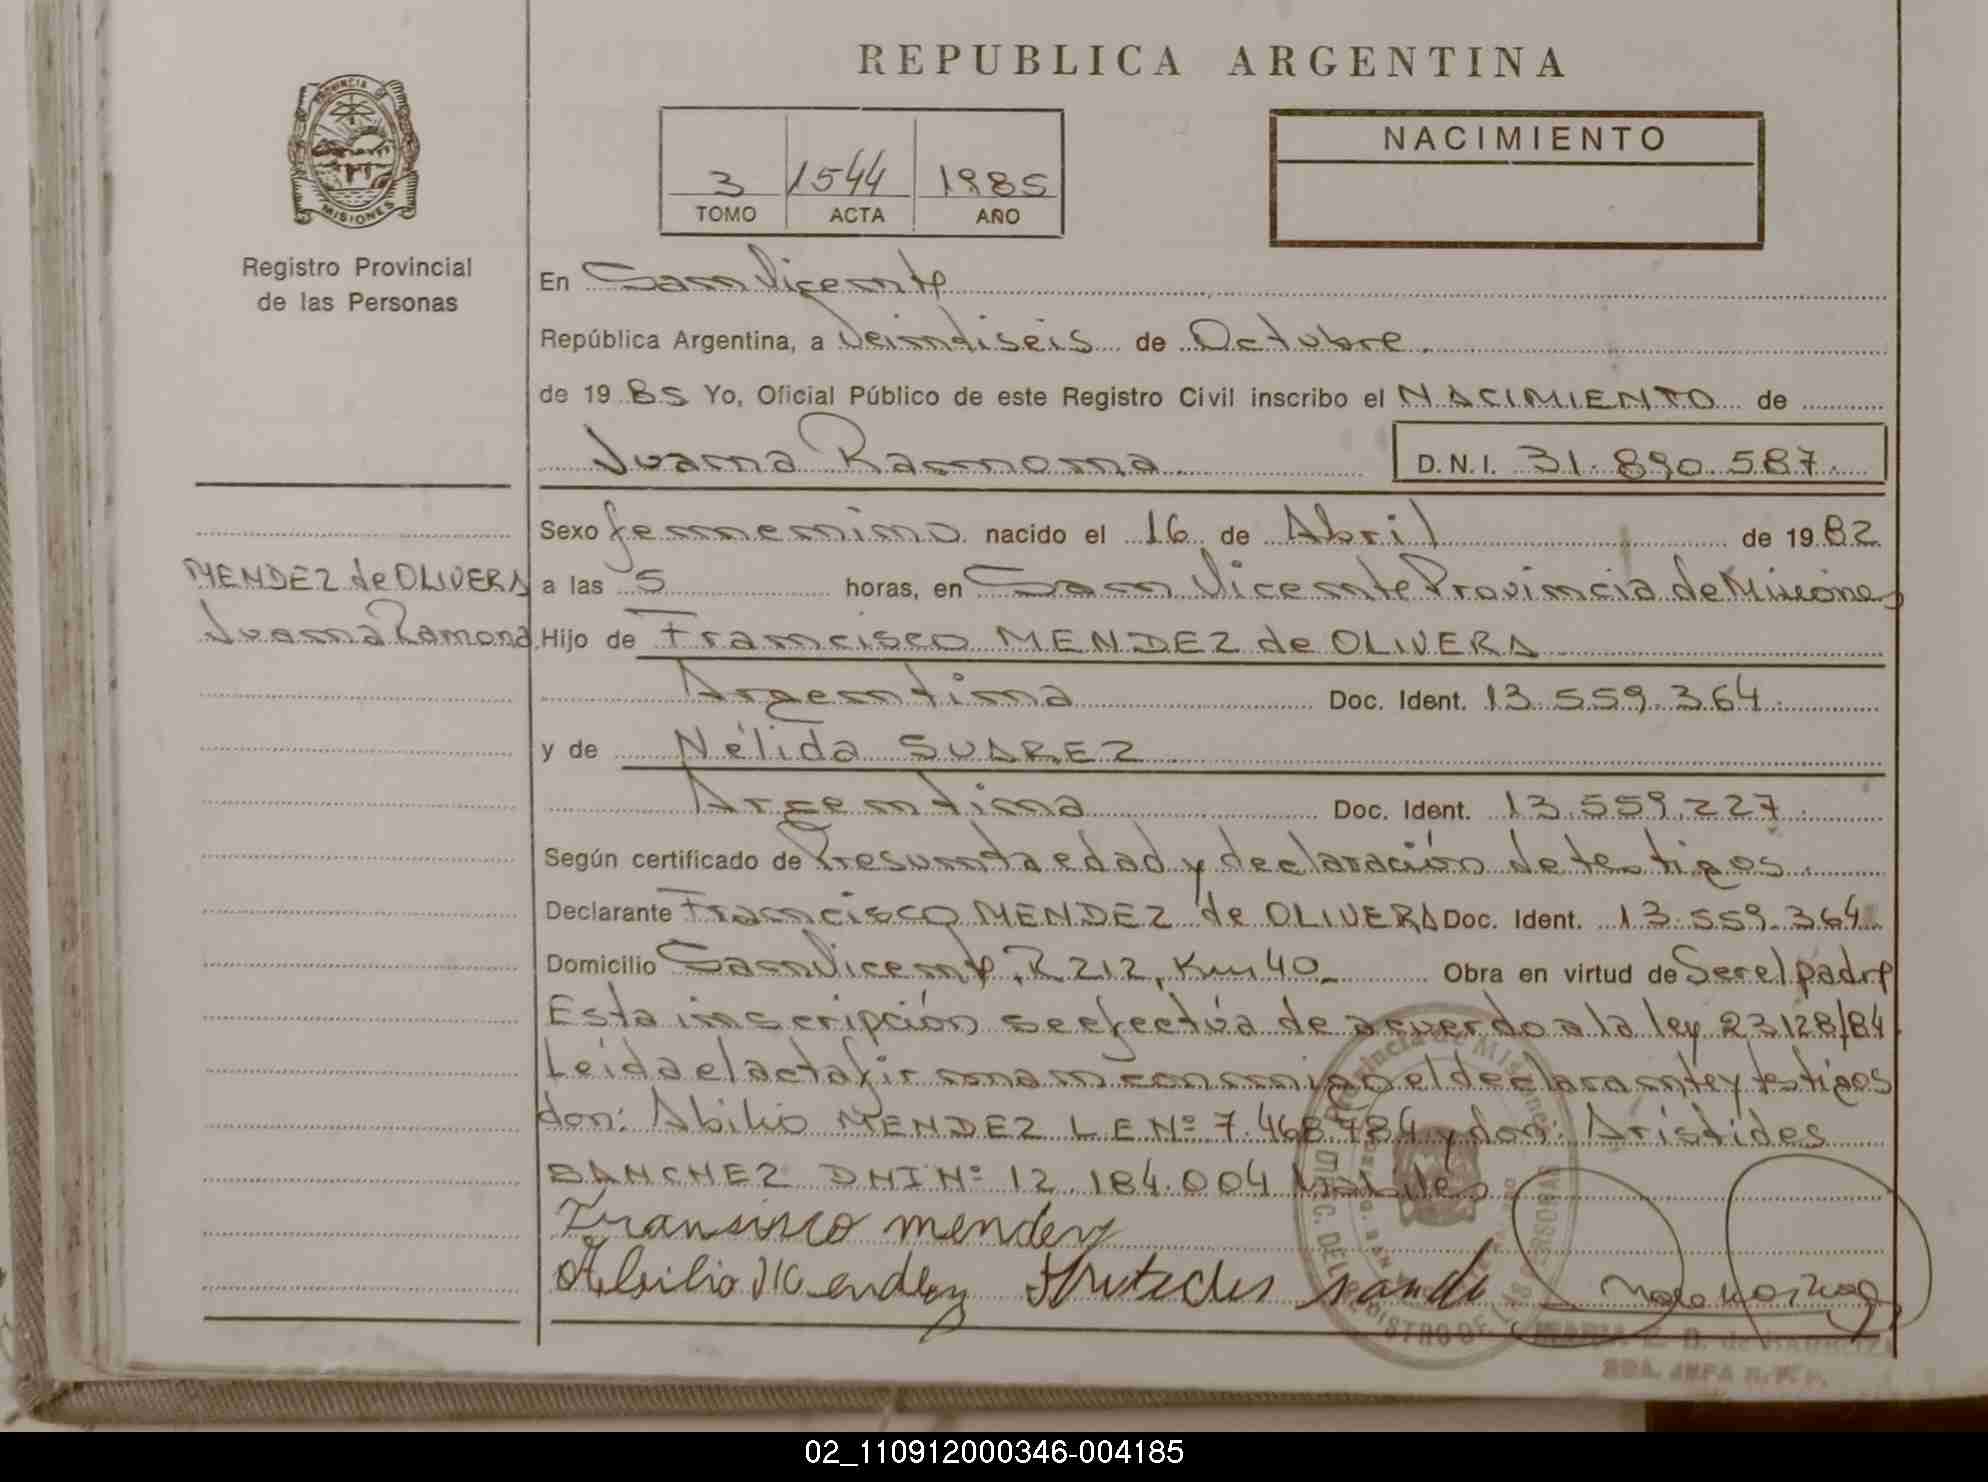 REPUBLICA ARGENTINA
PROVINCIA
MISIONES
Registro Provincial
de las Personas
3 1544 1985
TOMO ACTA AÑO
NACIMIENTO
En San Vicente
República Argentina, a Veintiseis de Octubre.
de 1985 Yo, Oficial Público de este Registro Civil inscribo el NACIMIENTO de
Juana Ramona D.N.I. 31.890.587.
Sexo femenino nacido el 16 de Abril de 1982
MENDEZ de OLIVERA
Juana Ramona
a las 5 horas, en San Vicente Provincia de Misiones
Hijo de Francisco MENDEZ de OLIVERA
Argentina Doc. Ident. 13.559.364.
y de Nélida SUAREZ
Argentina Doc. Ident. 13.559.227.
Según certificado de Presunta edad y declaración de testigos.
Declarante Francisco MENDEZ de OLIVERA Doc. Ident. 13.559.364
Domicilio San Vicente, R 212, Km 40 Obra en virtud de Ser el padre
Esta inscripción se efectúa de acuerdo a la ley 23128/84
Leída el acta firman conmigo el declarante y testigos
don: Abilio MENDEZ L E Nº 7.468.784 y don: Arístides
SANCHEZ DNI Nº 12.184.004 hábiles
Fransisco mendez
Abilio Mendez
Provincia de Misiones
02_110912000346-004185